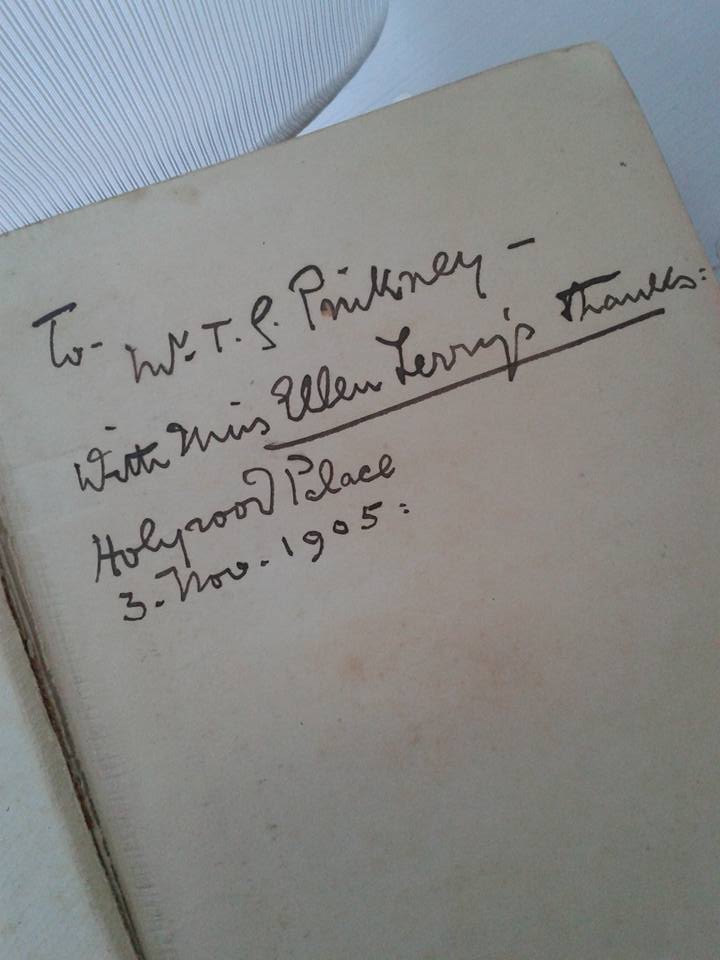 To- Mr. T. S. Pinkney -
With Miss Ellen Terry's Thanks:
Holyrood Palace
3. Nov. 1905: